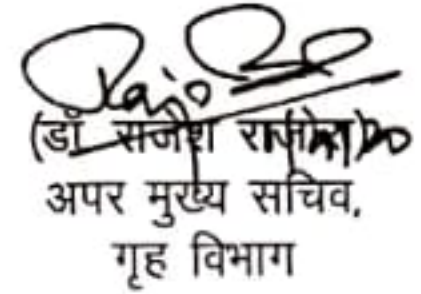 (डॉ राजेश राजोरा)
अपर मुख्य सचिव,
गृह विभाग